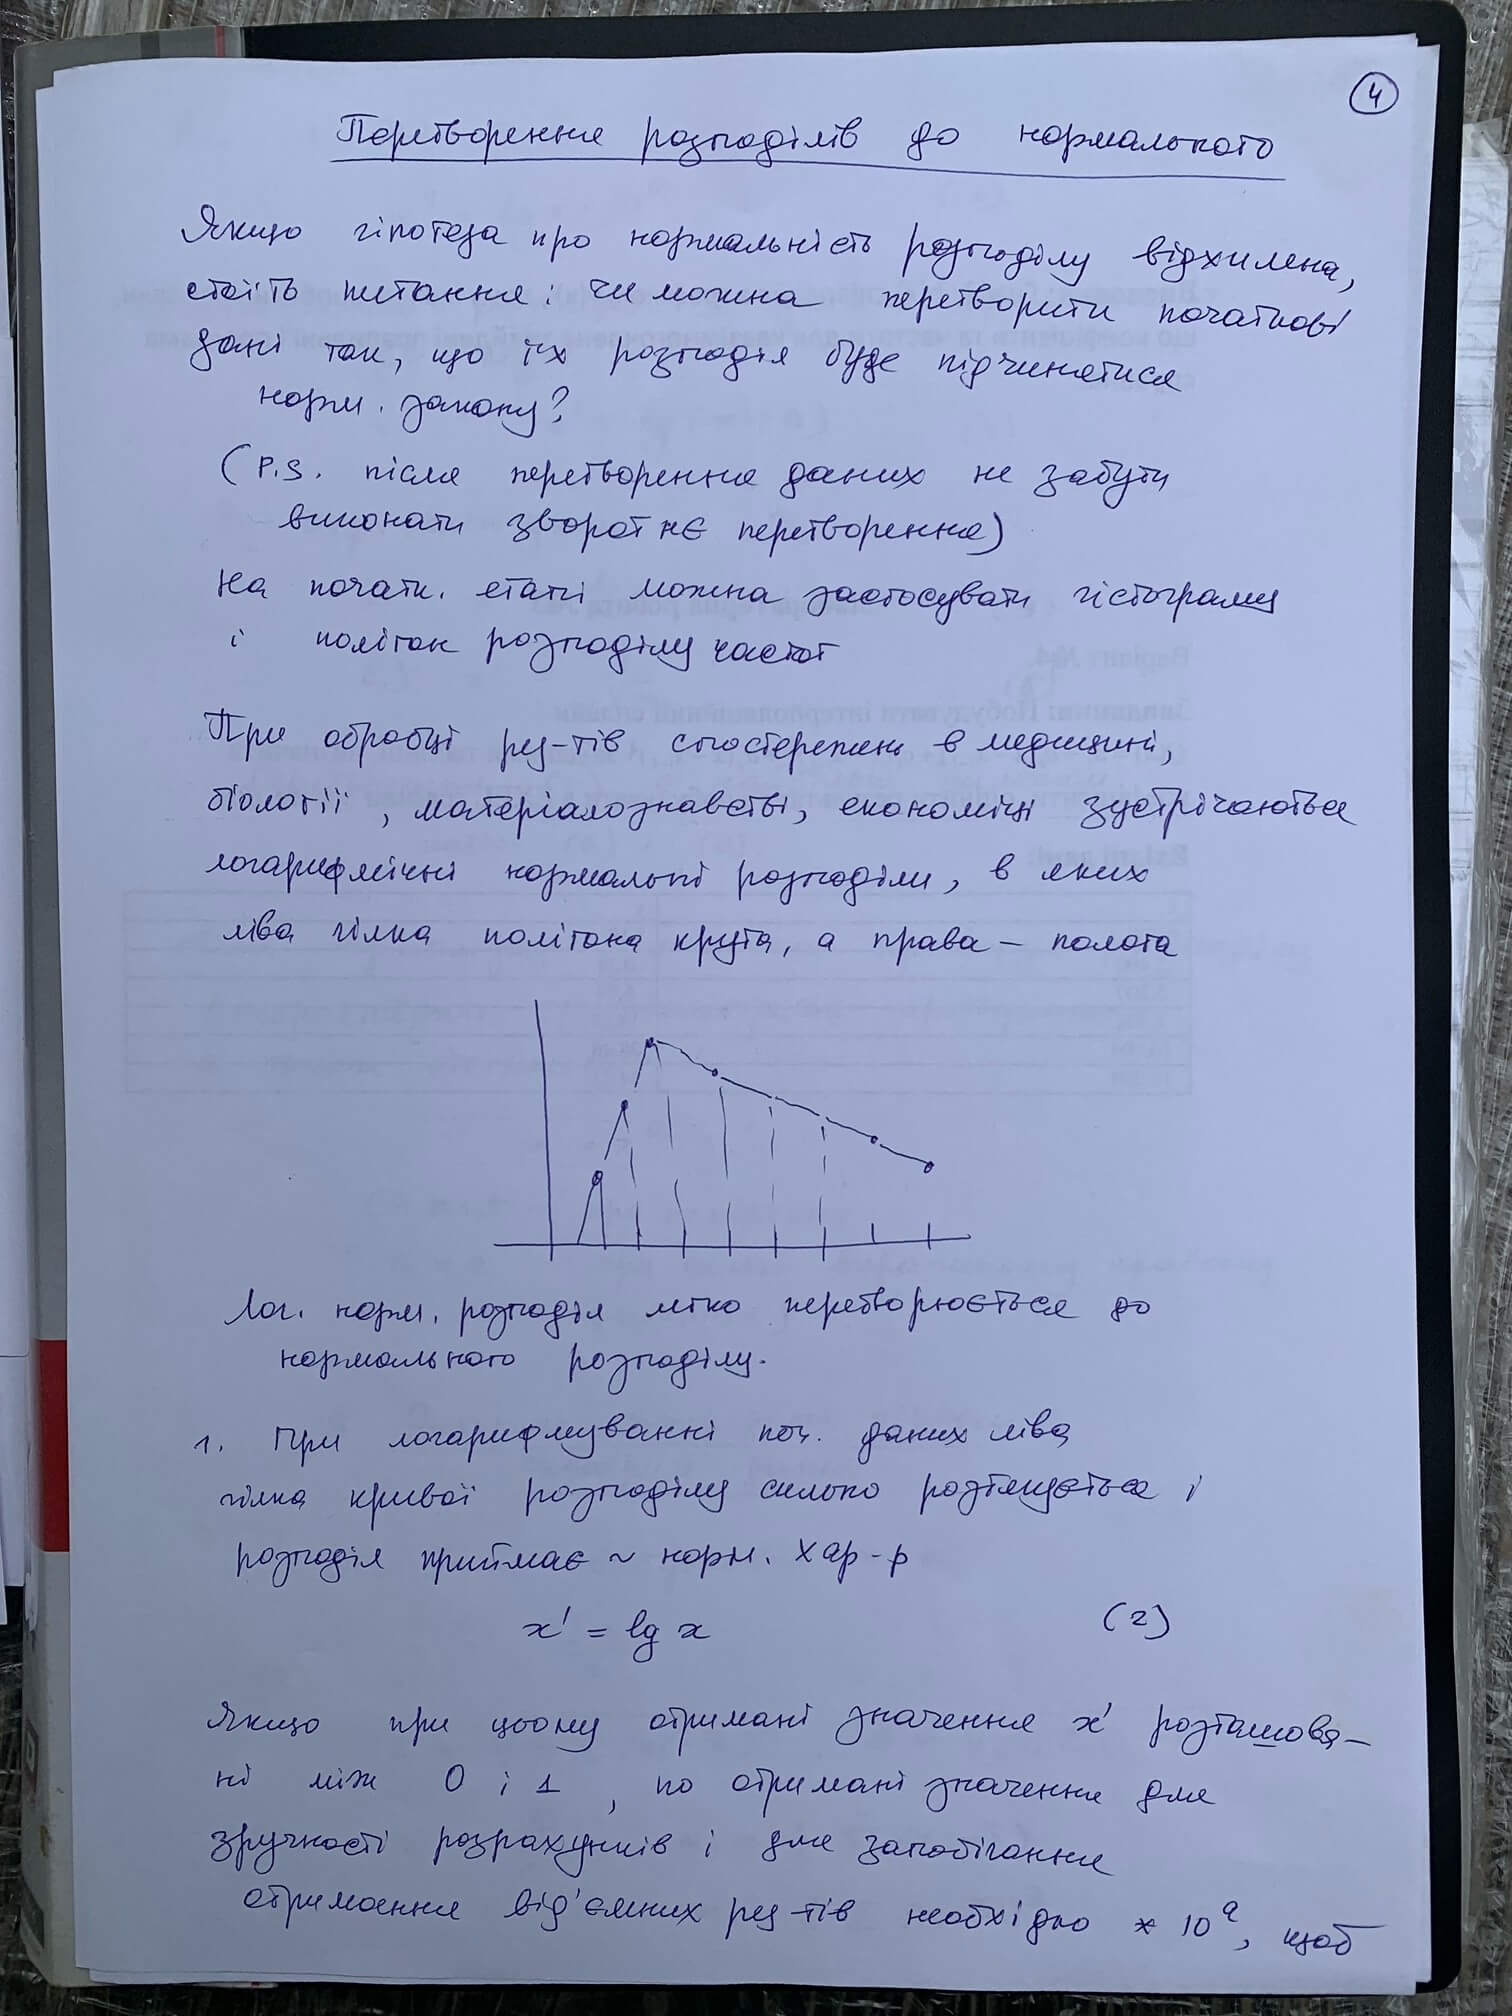 4
Перетворення розподілів до нормального
Якщо гіпотеза про нормальність розподілу відхилена,
стоїть питання: чи можна перетворити початкові
дані так, що їх розподіл буде підчинятися
норм. закону?
(P.S. після перетворення даних не забути
виконати зворотнє перетворення)
На початк. етапі можна застосувати гістограму
і полігон розподілу частот
При обробці рез-тів спостережень в медицині,
біології, матеріалознавстві, економіці зустрічаються
логарифмічні нормальні розподіли, в яких
ліва гілка полігона крута, а права – полога
Лог. норм. розподіл легко перетворюється до
нормального розподілу.
1. При логарифмуванні поч. даних ліва
гілка кривої розподілу сильно розтягується і
розподіл приймає ~ норм. хар-р
x' = lg x (2)
Якщо при цьому отримані значення x' розташова-
ні між 0 і 1, то отримані значення для
зручності розрахунків і для запобігання
отримання від'ємних рез-тів необхідно * 10ᵃ, щоб